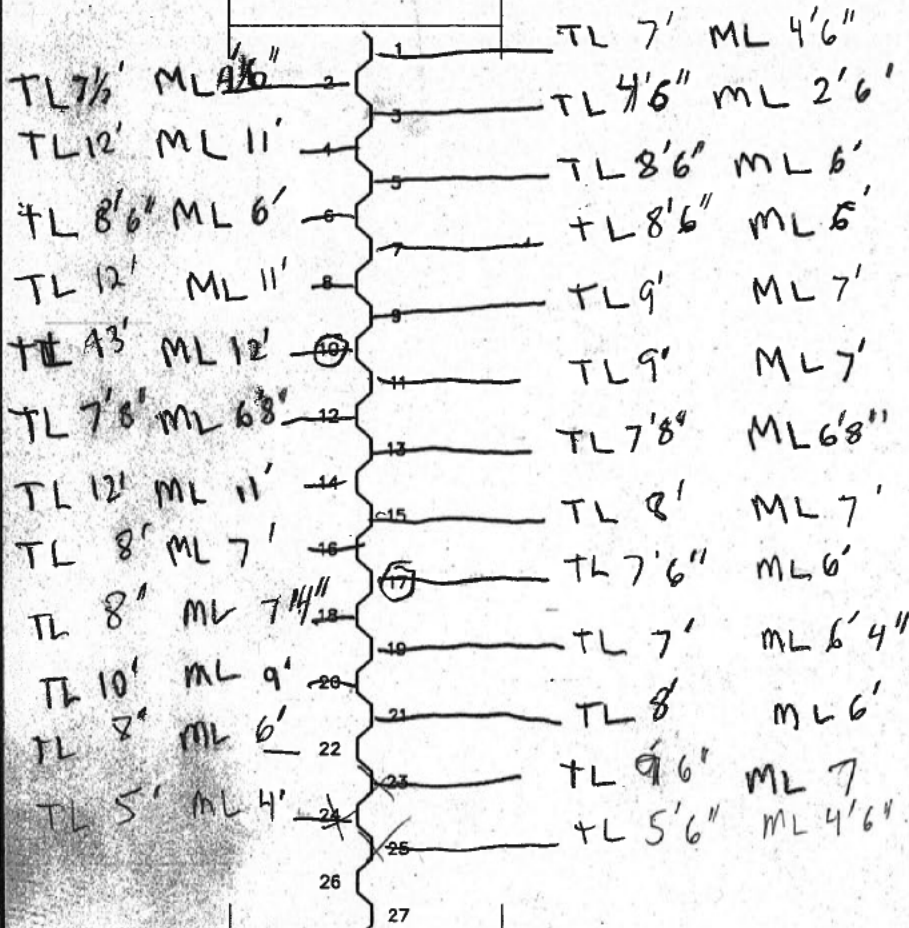 1 TL 7' ML 4'6"
TL 7½' ML 2
3 TL 4'6" ML 2'6"
TL 12' ML 11' 4
5 TL 8'6" ML 6'
TL 8'6" ML 6' 6
7 TL 8'6" ML 6'
TL 12' ML 11' 8
9 TL 9' ML 7'
TL 43' ML 12' 10
11 TL 9' ML 7'
TL 7'8" ML 6'8" 12
13 TL 7'8" ML 6'8"
TL 12' ML 11' 14
15 TL 8' ML 7'
TL 8' ML 7' 16
17 TL 7'6" ML 6'
TL 8" ML 7'4" 18
19 TL 7' ML 6'4"
TL 10' ML 9' 20
21 TL 8' ML 6'
TL 8' ML 6' 22
23 TL 6" ML 7
TL 5' ML 4' 24
25 TL 5'6" ML 4'6"
26
27